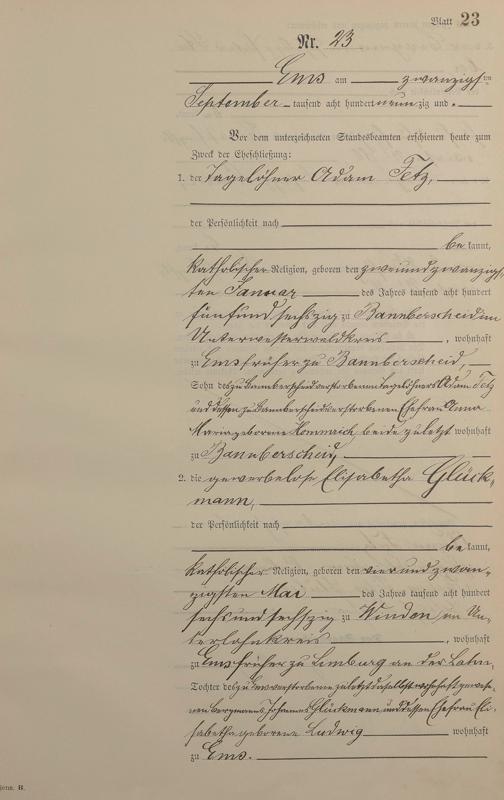 Blatt 23
Nr. 23
Ems am zwanzigsten
September tausend acht hundert neunzig und
Vor dem unterzeichneten Standesbeamten erschienen heute zum
Zweck der Eheschließung:
1. der Tagelöhner Adam Fetz,
der Persönlichkeit nach
be kannt,
katholischer Religion, geboren den zweiundzwanzig-
sten Januar des Jahres tausend acht hundert
fünfundsechszig zu Bannberscheid im
Unterwesterwaldkreis, wohnhaft
zu Ems früher zu Bannberscheid,
Sohn des zu Bannberscheid verstorbenen Tagelöhners Adam Fetz
und dessen zu Bannberscheid verstorbenen Ehefrau Anna
Maria geborene beide zuletzt wohnhaft
zu Bannberscheid
2. die gewerbelose Elisabetha Glück-
mann,
der Persönlichkeit nach
be kannt,
katholischer Religion, geboren den vier und zwan-
zigsten Mai des Jahres tausend acht hundert
sechsundsechszig zu Winden im Un-
terlahnkreis, wohnhaft
zu Ems früher zu Limburg an der Lahn,
Tochter des zu Ems verstorbene zuletzt daselbst wohnhaft gewese-
nen Bergmanns Johannes Glückmann und dessen Ehefrau Eli-
sabetha geborene Ludwig wohnhaft
zu Ems.